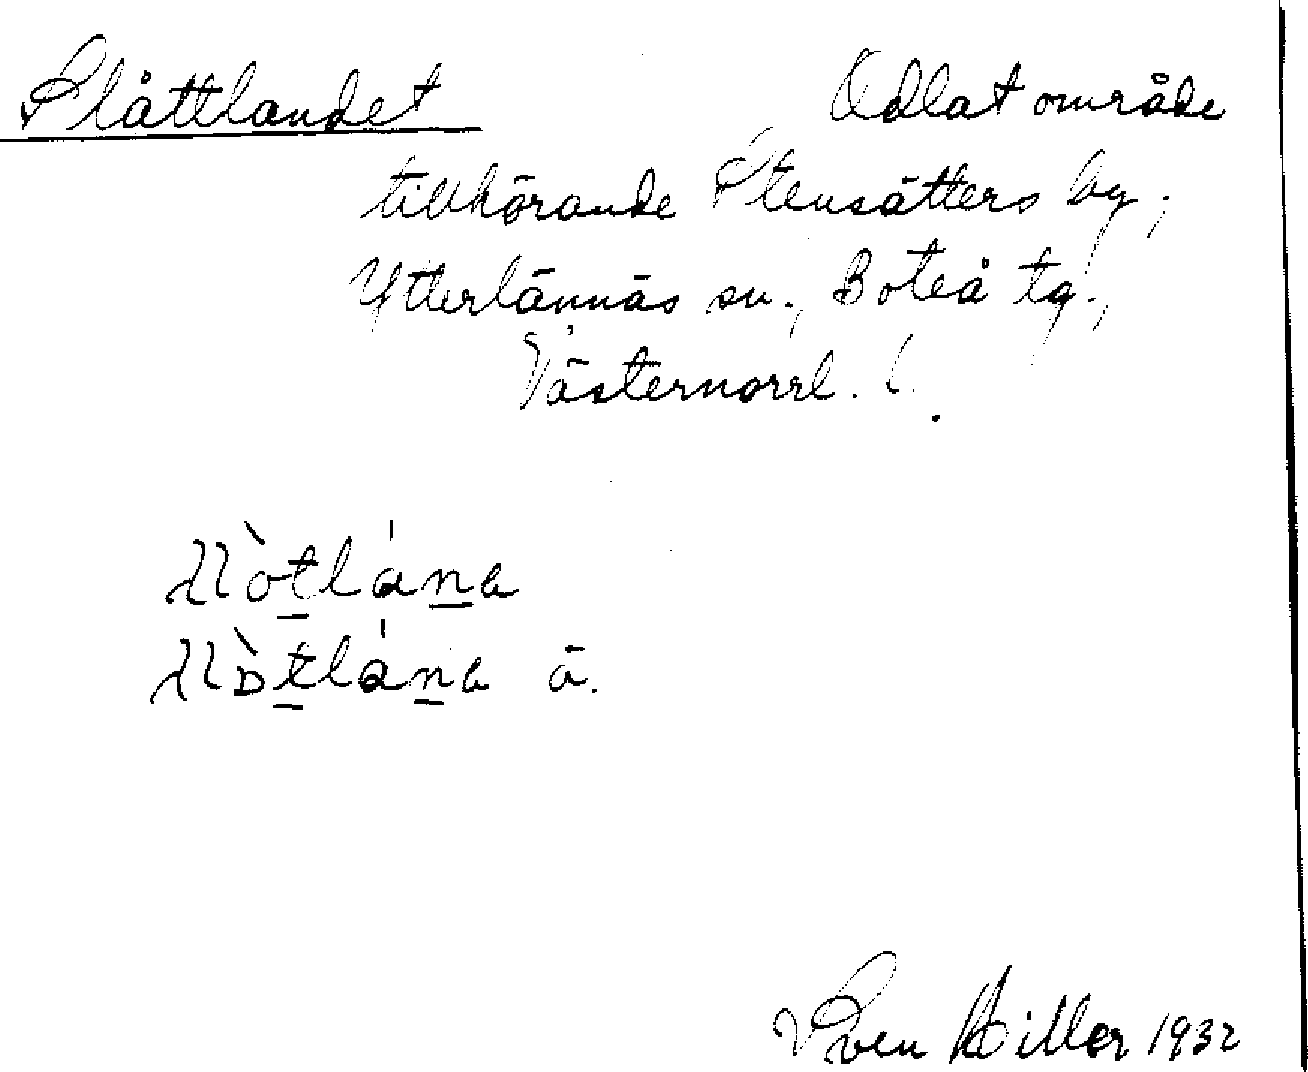 Slåttlandet Odlat område
tillhörande Stensätters by,
Ytterlännäs sn., Boteå tg.,
Västernorrl. l.
ä.
Sven Hiller 1932